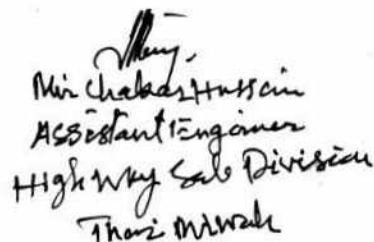 Mir Chakar Hussain
Assistant Engineer
Highway Sub Division
Thari Mirwah